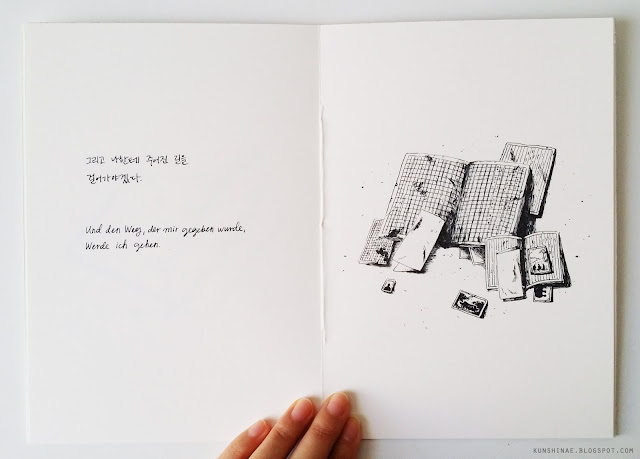 그리고 나한테 주어진 길을
걸어가야겠다.
Und den Weg, der mir gegeben wurde,
Werde ich gehen.
KUNSHINAE.BLOGSPOT.COM